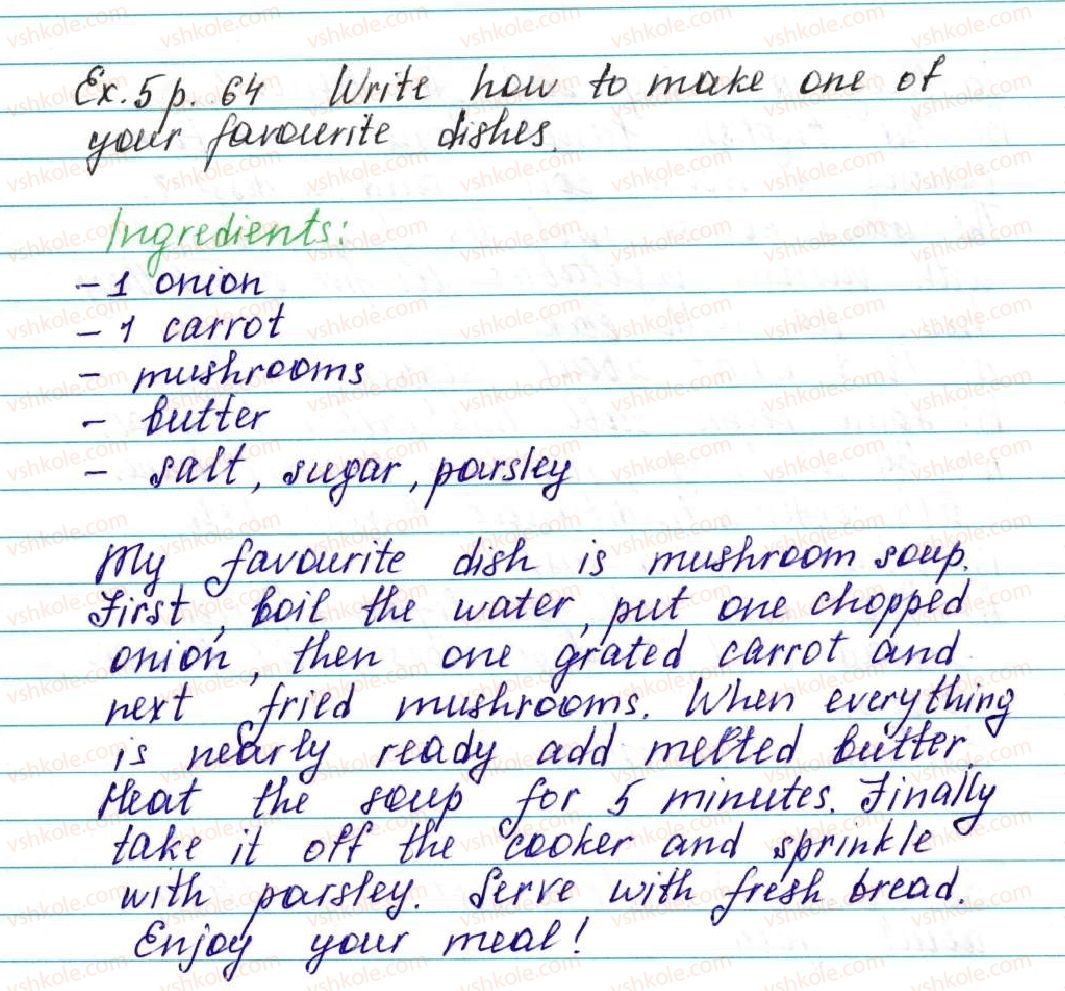 Ex. 5 p. 64 Write how to make one of
your favourite dishes.
Ingredients:
- 1 onion
- 1 carrot
- mushrooms
- butter
- salt, sugar, parsley
My favourite dish is mushroom soup.
First, boil the water, put one chopped
onion, then one grated carrot and
next fried mushrooms. When everything
is nearly ready add melted butter.
Heat the soup for 5 minutes. Finally
take it off the cooker and sprinkle
with parsley. Serve with fresh bread.
Enjoy your meal!